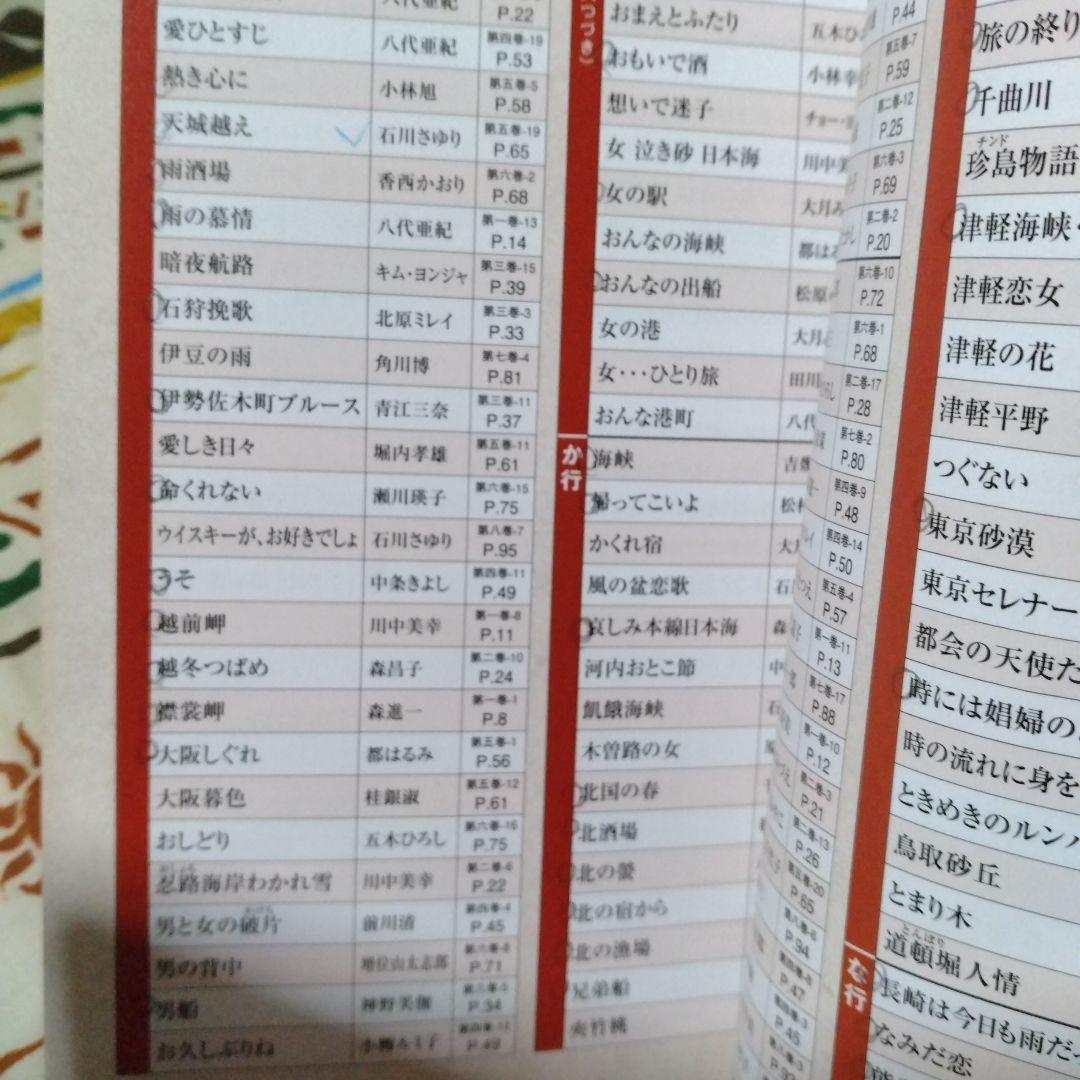 八代亜紀 P.22
愛ひとすじ 八代亜紀 第四巻-19 P.53
熱き心に 小林旭 第五巻-5 P.58
天城越え 石川さゆり 第五巻-19 P.65
雨酒場 香西かおり 第六巻-2 P.68
雨の慕情 八代亜紀 第一巻-13 P.14
暗夜航路 キム・ヨンジャ 第三巻-15 P.39
石狩挽歌 北原ミレイ 第三巻-3 P.33
伊豆の雨 角川博 第七巻-4 P.81
伊勢佐木町ブルース 青江三奈 第三巻-11 P.37
愛しき日々 堀内孝雄 第五巻-11 P.61
命くれない 瀬川瑛子 第六巻-15 P.75
ウイスキーが、お好きでしょ 石川さゆり 第八巻-7 P.95
うそ 中条きよし 第四巻-11 P.49
越前岬 川中美幸 第一巻-8 P.11
越冬つばめ 森昌子 第二巻-10 P.24
襟裳岬 森進一 第一巻-1 P.8
大阪しぐれ 都はるみ 第五巻-1 P.56
大阪暮色 桂銀淑 第五巻-12 P.61
おしどり 五木ひろし 第六巻-16 P.75
忍路海岸わかれ雪 川中美幸 第二巻-6 P.22
男と女の破片 前川清 第四巻-4 P.45
男の背中 増位山太志郎 P.71
男船 神野美伽 P.34
お久しぶりね 小柳ルミ子 P.49
つづき)
おまえとふたり 五木ひ
おもいで酒 小林幸
想いで迷子 チョー・
女 泣き砂 日本海 川中美
女の駅 大月み
おんなの海峡 都は
おんなの出船 松原
女の港 大月
女・・・ひとり旅 田川
おんな港町 八代
か行
海峡 吉
帰ってこいよ 松村
かくれ宿 大
風の盆恋歌 石
哀しみ本線日本海 森
河内おとこ節 中
飢餓海峡 石
木曽路の女
北国の春
北酒場
北の螢
北の宿から
北の漁場
兄弟船
夾竹桃
P.44
第五巻-7 P.59
第二巻-12 P.25
第六巻-3 P.69
第二巻-2 P.20
第六巻-10 P.72
第六巻-1 P.68
第二巻-17 P.28
第七巻-2 P.80
第四巻-9 P.48
第四巻-14 P.50
第五巻-4 P.57
第一巻-11 P.13
第七巻-17 P.88
第一巻-10 P.12
第二巻-3 P.21
第二巻-13 P.26
第五巻-20 P.65
第八巻-6 P.94
P.47
P.45
旅の終り
千曲川
チンド
珍島物語
津軽海峡・
津軽恋女
津軽の花
津軽平野
つぐない
東京砂漠
東京セレナー
都会の天使た
時には娼婦の
時の流れに身を
ときめきのルンバ
鳥取砂丘
とまり木
とんぼり
道頓堀人情
な行
長崎は今日も雨だ
なみだ恋